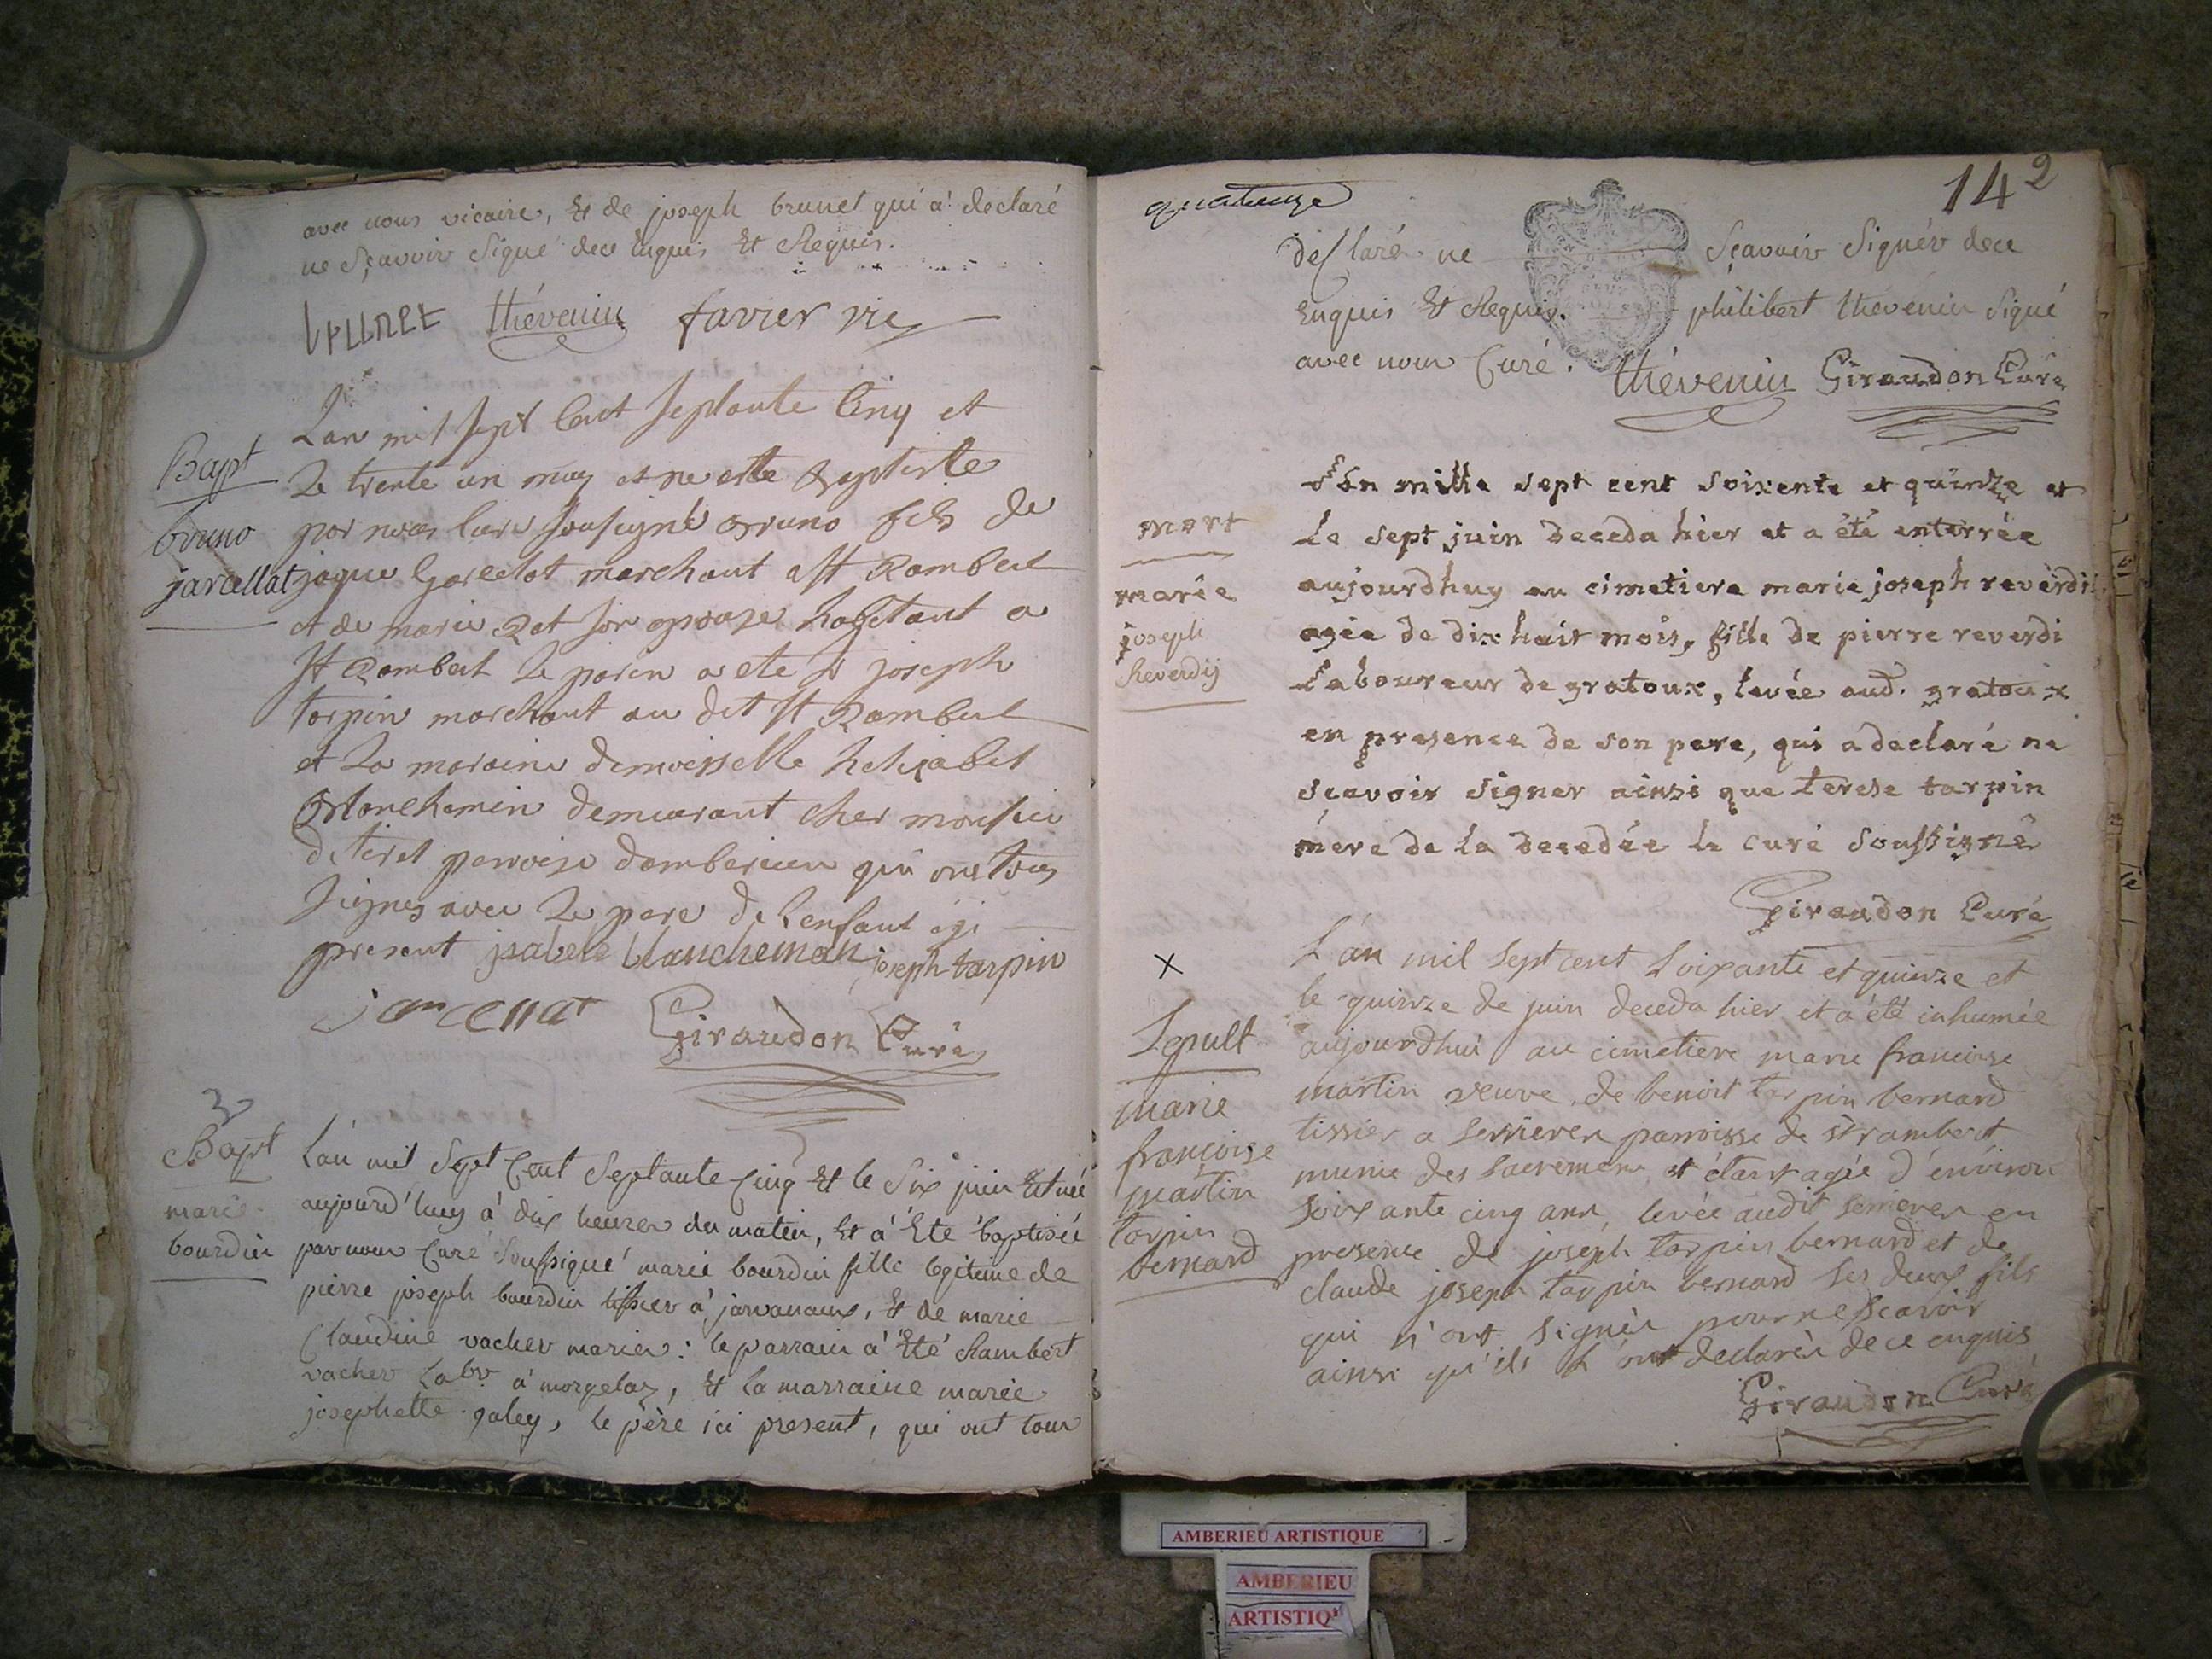 avec nous vicaire, Et de joseph brunet qui a declaré
ne Sçavoir Signé dece Enquis Et Requis.
thévenin favier vic
Bapt
bruno
jarcellat
Lan mil sept Cent septante Cinq et
Le trente un may et ne este Baptiste
por nous Cure sousigné Bruno fils de
jaque Garcelat marchant a St Rambert
et de marie Rat son epouse habitant a
St Rambert Le paren a ete Sr joseph
torpin marchant au dit St Rambert
et La maraine demoisselle
Blonchemin demeurant cher monsieu
paroise dambericeu qui ont tous
signes avec Le pere de Lenfant
present jsabele blanchemain joseph tarpin
jarcellat Giraudon Curé
3
Bapt
marie
bourdin
L'an mil Sept Cent Septante Cinq Et le Six juin Est née
aujourd'huy à dix heures du matin, Et à Eté baptisée
par nous Curé Soussigné marie bourdin fille legitime de
pierre joseph bourdin tissier à javanaux, Et de marie
Claudine vacher mariés: le parrain à Eté Rambert
vacher Labr. à morgelaz, Et la marraine marie
josephette galey, le père ici present, qui ont tous
quatorze
14 2
declaré ne Sçavoir Signér dece
Enquis Et Requis. philibert thevenin Signé
avec nous Curé. thévenin Giraudon Curé
mort
marie
joseph
Reverdij
L'an mille sept cent soixente et quinze et
Le sept juin deceda hier et a été enterrée
aujourdhuy au cimetiere marie joseph reverdi
agée de dix huit mois, fille de pierre reverdi
Laboureur de gratoux, levée aud. gratoux
en presence de son pere, qui a declaré ne
scavoir signer ainsi que terese tarpin
mere de La decedée le curé soussigné
Giraudon Curé
x
Sepult
marie
françoise
martin
tarpin
bernard
L'an mil sept cent soixante et quinze et
le quinze de juin deceda hier et a été inhumée
aujourdhui au cimetiere marie francoise
martin veuve de benoit tarpin bernard
tissier a serrieres parroisse de st rambert
munie des sacremens et étant agée d'environ
soixante cinq ans, levée audit serrieres en
presence de joseph tarpin bernard et de
claude joseph tarpin bernard ses deux fils
qui n'ont signés pour ne scavoir
ainsi qu'ils L'ont declarés de ce enquis
Giraudon Curé
AMBERIEU ARTISTIQUE
AMBERIEU
ARTISTIQU